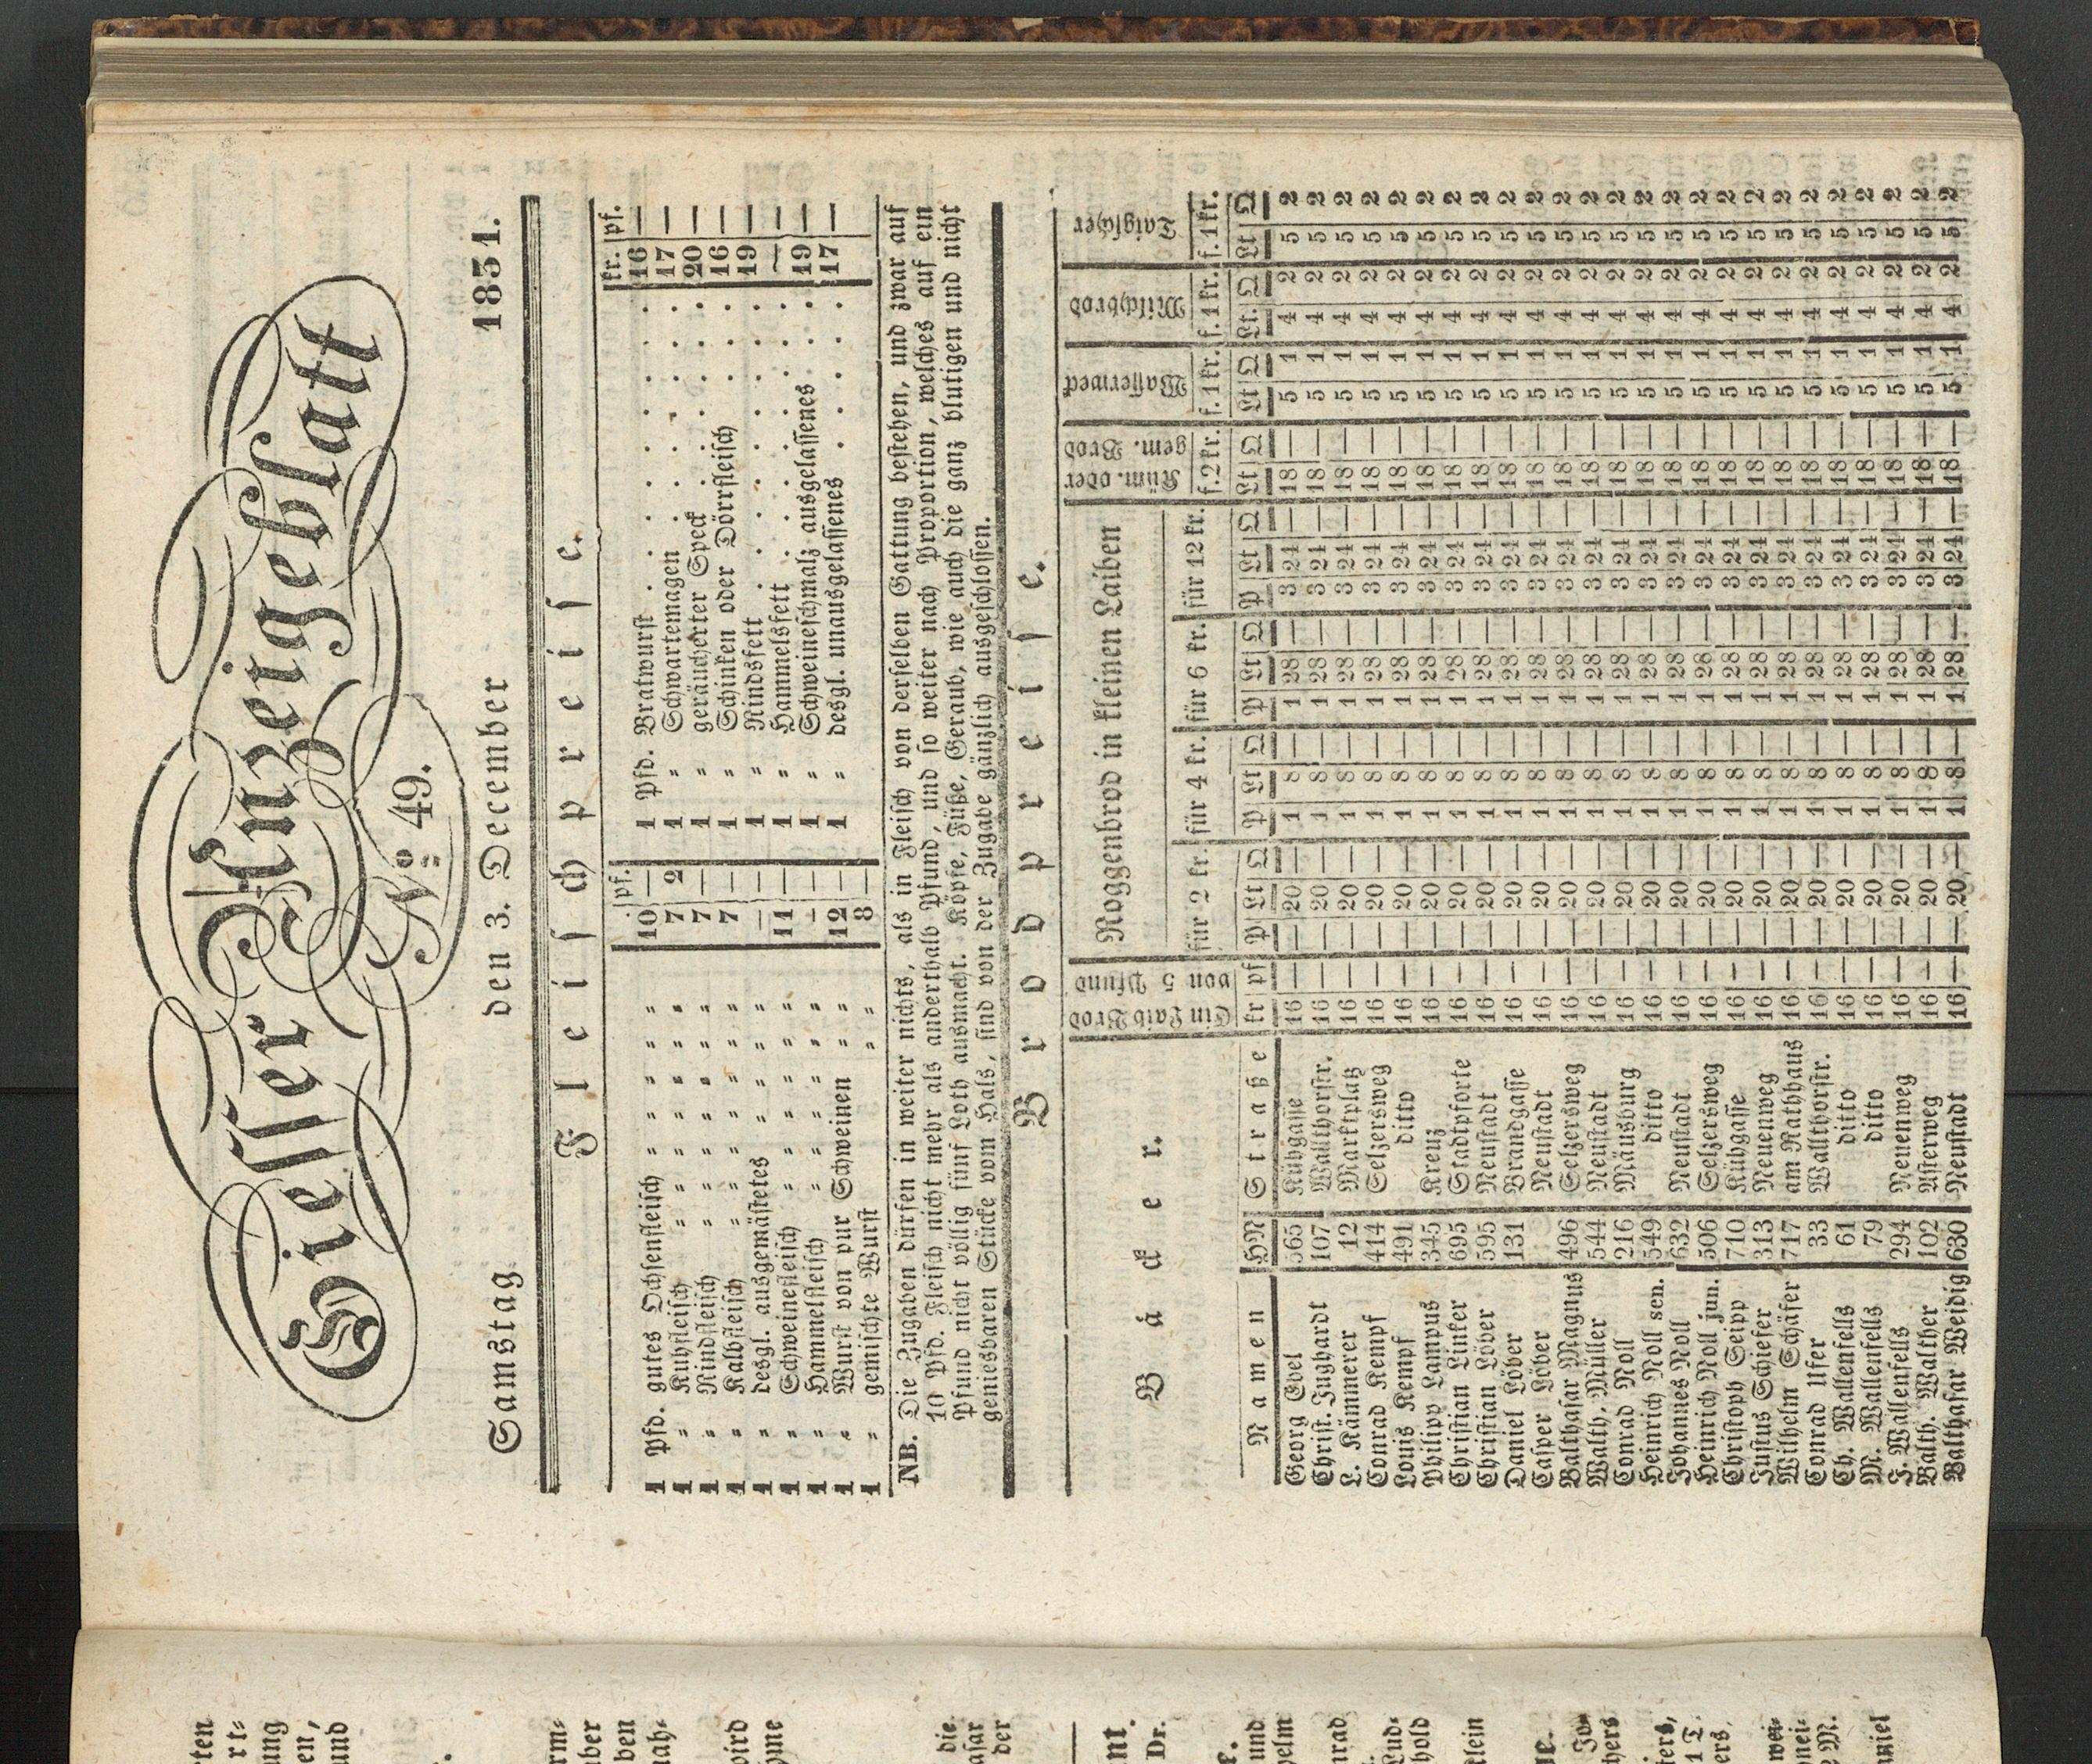 Giesser Anzeigeblatt
No. 49.
Samstag den 3. December 1831.
Fleischpreise.
kr. pf. kr. pf.
1 Pfd. gutes Ochsenfleisch " " " " " " 10 — 1 Pfd. Bratwurst . . . . . 16 —
1 " Kuhfleisch " " " " " " " 7 2 1 " Schwartemagen . . . . 17 —
1 " Rindfleisch " " " " " " " 7 — 1 " geräucherter Speck . . . . 20 —
1 " Kalbfleisch " " " " " " " 7 — 1 " Schinken oder Dörrfleisch . . . 16 —
1 " desgl. ausgemästetes " " " " " — — 1 " Rindsfett . . . . . 19 —
1 " Schweinefleisch " " " " " " 11 — 1 " Hammelsfett . . . . . — —
1 " Hammelfleisch " " " " " " — — 1 " Schweineschmalz ausgelassenes . . . 19 —
1 " Wurst von pur Schweinen " " " 12 — 1 " desgl. unausgelassenes . . . . 17 —
1 " gemischte Wurst " " 8 —
NB. Die Zugaben dürfen in weiter nichts, als in Fleisch von derselben Gattung bestehen, und zwar auf
10 Pfd. Fleisch nicht mehr als anderthalb Pfund, und so weiter nach Proportion, welches auf ein
Pfund nicht völlig fünf Loth ausmacht. Köpfe, Füße, Geraub, wie auch die ganz blutigen und nicht
geniesbaren Stücke vom Hals, sind von der Zugabe gänzlich ausgeschlossen.
Brodpreise.
Bäcker. Ein Laib Brod von 5 Pfund Roggenbrod in kleinen Laiben Küm. oder gem. Brod Wasserweck Milchbrod Taigscher
für 2 kr. für 4 kr. für 6 kr. für 12 kr. f. 2 kr. f. 1 kr. f. 1 kr. f. 1 kr.
Namen HN Straße kr pf P Lt Q P Lt Q P Lt Q P Lt Q Lt Q Lt Q Lt. Q Lt Q
Georg Ebel 565 Kühgasse 16 — — 20 — 1 8 — 1 28 — 3 24 — 18 — 5 1 4 2 5 2
Christ. Jughardt 107 Wallthorstr. 16 — — 20 — 1 8 — 1 28 — 3 24 — 18 — 5 1 4 2 5 2
L. Kämmerer 12 Marktplatz 16 — — 20 — 1 8 — 1 28 — 3 24 — 18 — 5 1 4 2 5 2
Conrad Kempf 414 Selzersweg 16 — — 20 — 1 8 — 1 28 — 3 24 — 18 — 5 1 4 2 5 2
Louis Kempf 491 ditto 16 — — 20 — 1 8 — 1 28 — 3 24 — 18 — 5 1 4 2 5 2
Philipp Lampus 345 Kreuz 16 — — 20 — 1 8 — 1 28 — 3 24 — 18 — 5 1 4 2 5 2
Christian Linker 695 Stadtpforte 16 — — 20 — 1 8 — 1 28 — 3 24 — 18 — 5 1 4 2 5 2
Christian Löber 595 Neustadt 16 — — 20 — 1 8 — 1 28 — 3 24 — 18 — 5 1 4 2 5 2
Daniel Löber 131 Brandgasse 16 — — 20 — 1 8 — 1 28 — 3 24 — 18 — 5 1 4 2 5 2
Casper Löber Neustadt 16 — — 20 — 1 8 — 1 28 — 3 24 — 18 — 5 1 4 2 5 2
Balthasar Magnus 496 Selzersweg 16 — — 20 — 1 8 — 1 28 — 3 24 — 18 — 5 1 4 2 5 2
Walth. Müller 544 Neustadt 16 — — 20 — 1 8 — 1 28 — 3 24 — 18 — 5 1 4 2 5 2
Conrad Noll 216 Mäusburg 16 — — 20 — 1 8 — 1 28 — 3 24 — 18 — 5 1 4 2 5 2
Heinrich Noll sen. 549 ditto 16 — — 20 — 1 8 — 1 28 — 3 24 — 18 — 5 1 4 2 5 2
Johannes Noll 632 Neustadt 16 — — 20 — 1 8 — 1 28 — 3 24 — 18 — 5 1 4 2 5 2
Heinrich Noll jun. 506 Selzersweg 16 — — 20 — 1 8 — 1 28 — 3 24 — 18 — 5 1 4 2 5 2
Christoph Seipp 710 Kühgasse 16 — — 20 — 1 8 — 1 28 — 3 24 — 18 — 5 1 4 2 5 2
Justus Schiefer 313 Neuenweg 16 — — 20 — 1 8 — 1 28 — 3 24 — 18 — 5 1 4 2 5 2
Wilhelm Schäfer 717 am Rathhaus 16 — — 20 — 1 8 — 1 28 — 3 24 — 18 — 5 1 4 2 5 2
Conrad Ufer 33 Wallthorstr. 16 — — 20 — 1 8 — 1 28 — 3 24 — 18 — 5 1 4 2 5 2
Ch. Wallenfells 61 ditto 16 — — 20 — 1 8 — 1 28 — 3 24 — 18 — 5 1 4 2 5 2
M. Wallenfells 79 ditto 16 — — 20 — 1 8 — 1 28 — 3 24 — 18 — 5 1 4 2 5 2
J. Wallenfells 294 Neuenweg 16 — — 20 — 1 8 — 1 28 — 3 24 — 18 — 5 1 4 2 5 2
Balth. Walther 102 Asterweg 16 — — 20 — 1 8 — 1 28 — 3 24 — 18 — 5 1 4 2 5 2
Balthasar Weidig 630 Neustadt 16 — — 20 — 1 8 — 1 28 — 3 24 — 18 — 5 1 4 2 5 2